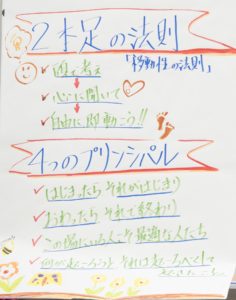 2本足の法則
「移動性の法則」
✓頭で考え
✓心に聞いて
✓自由に即動こう!!
4つのプリンシパル
✓はじまったらそれがはじまり
✓おわったらそれで終わり
✓この場にいる人こそ最適な人たち
✓何がおころうとそれはおこるべくして